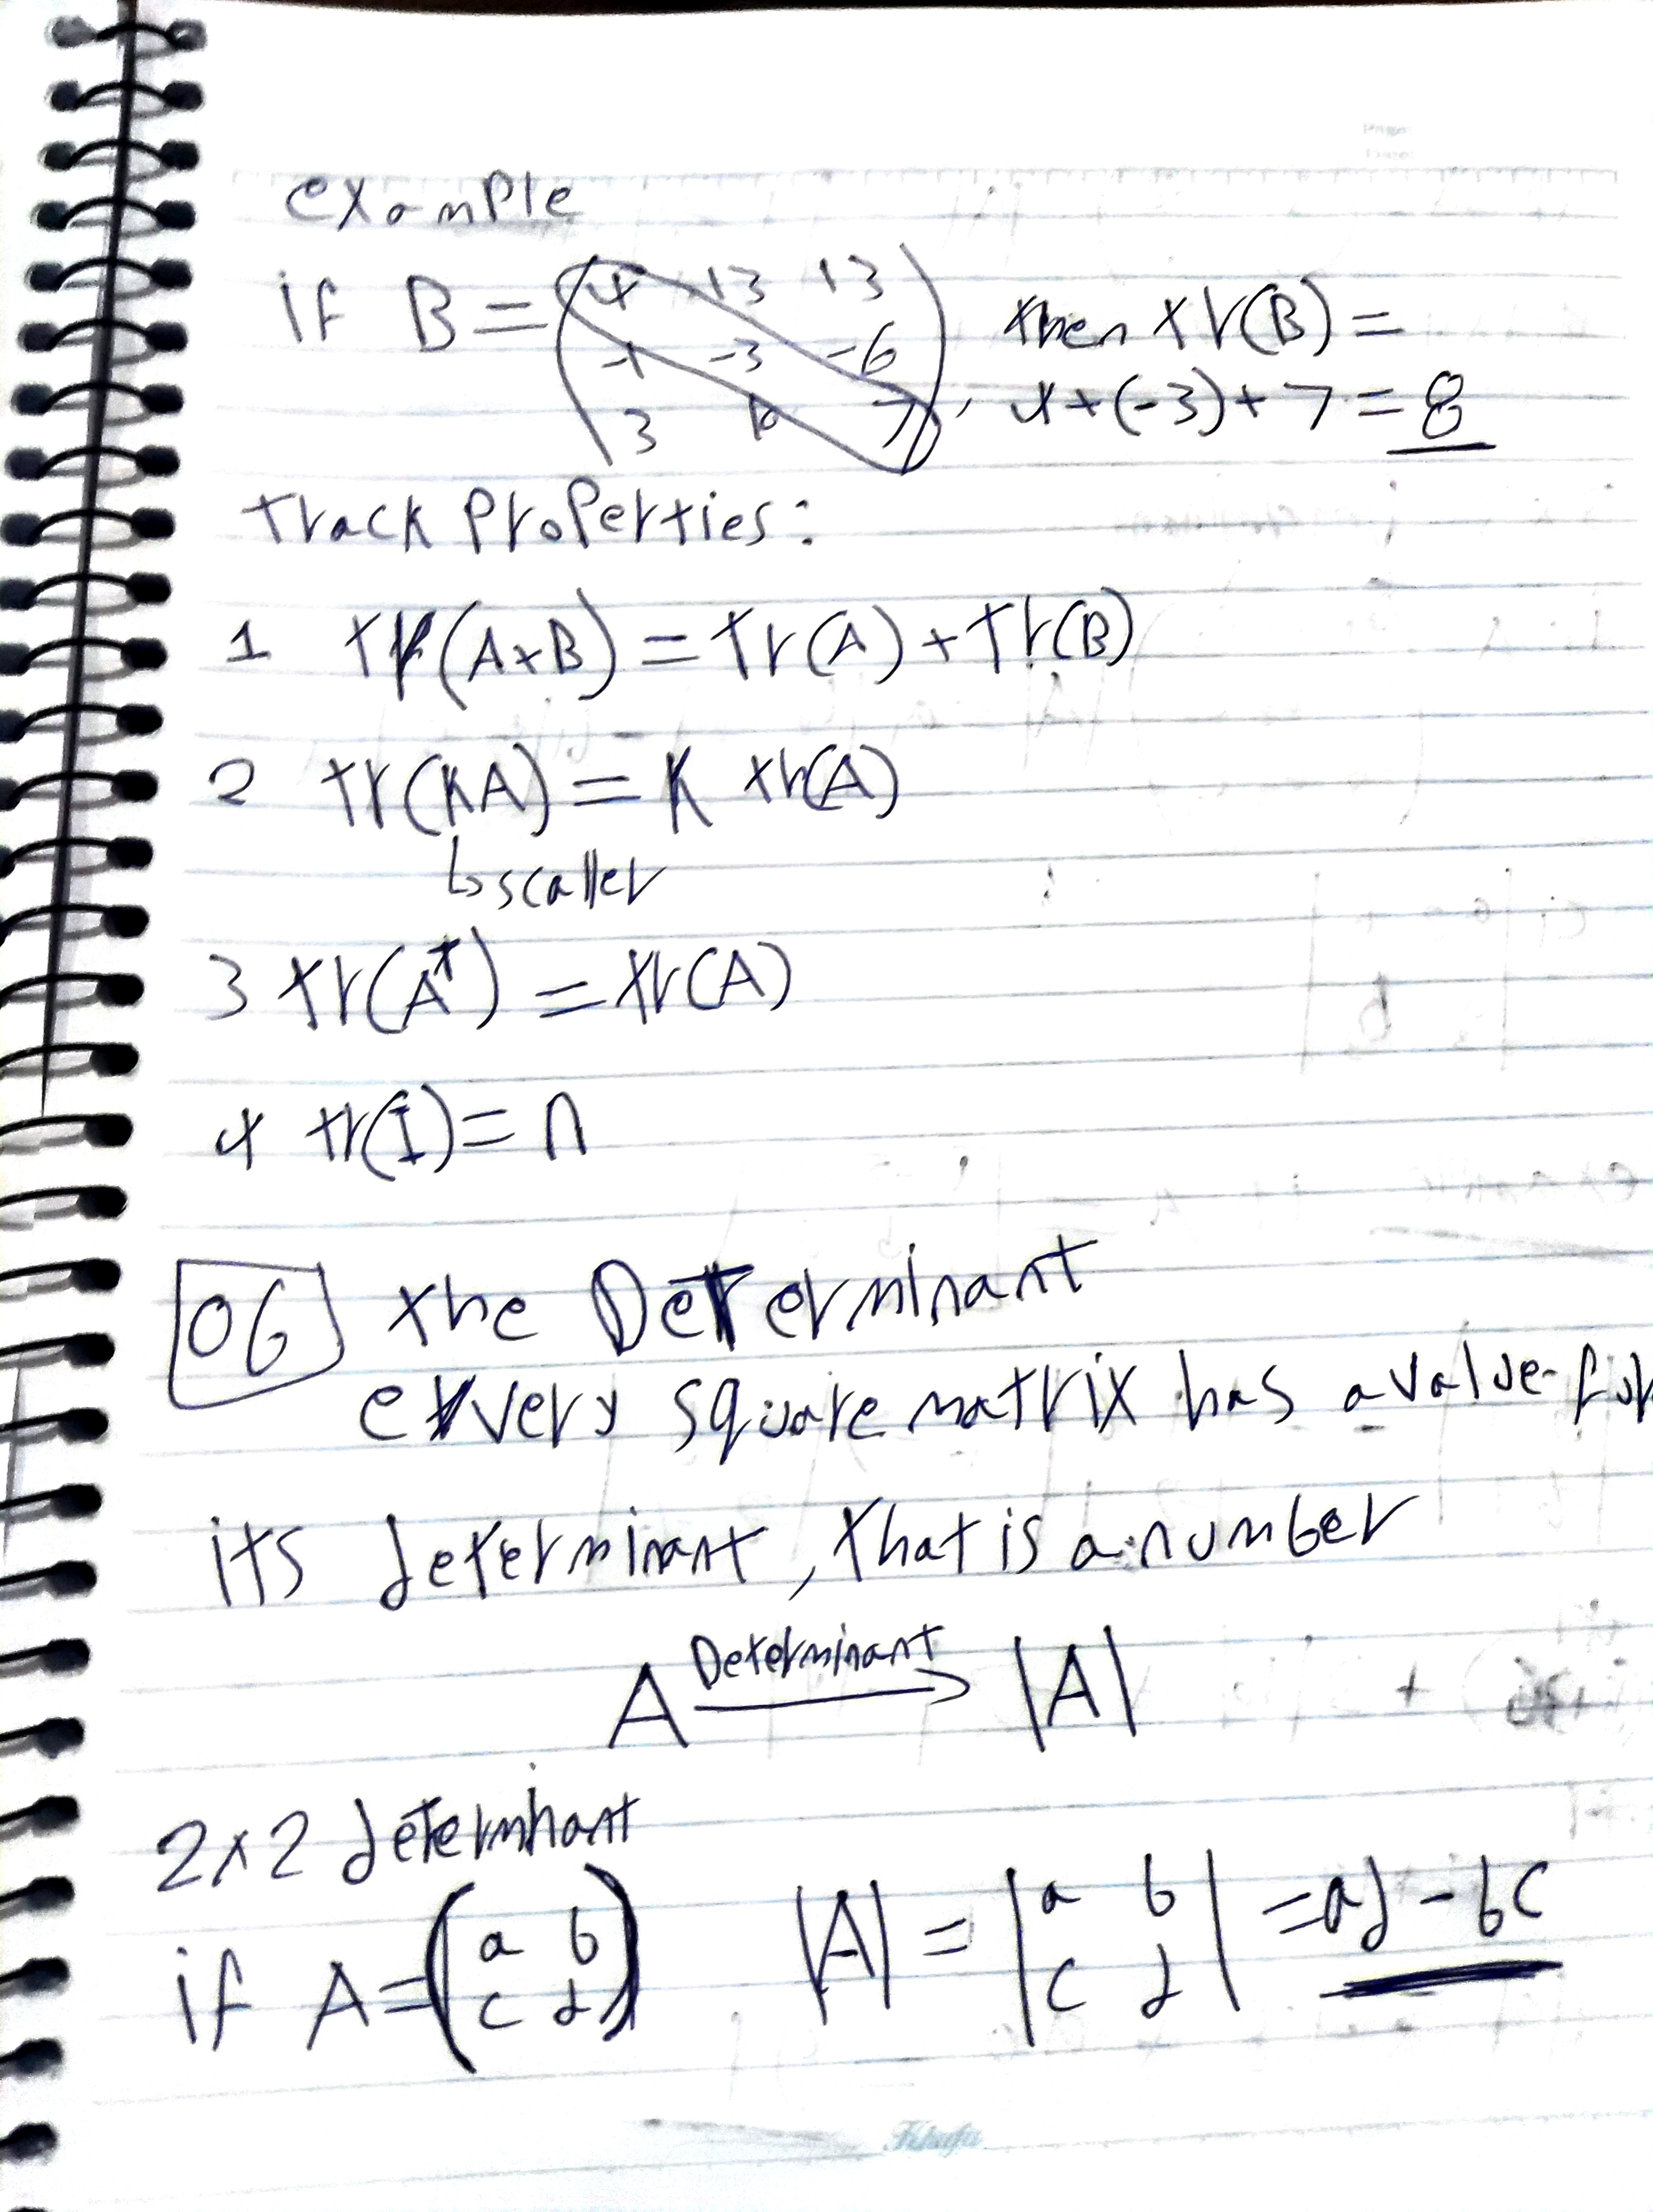 example
if B = ( 4 13 13 then tr(B) =
-1 -3 -6
3 10 7 ) , 4+(-3)+7 = 8
track properties:
1 tr(A+B) = tr(A) + tr(B)
2 tr(KA) = K tr(A)
↳ scaller
3 tr(A^t) = tr(A)
4 tr(I) = n
06 the Determinant
every square matrix has a value for
its determinant, that is a number
A Determinant → |A|
2x2 determinant
if A = ( a b |A| = | a b | = ad - bc
c d ) | c d |